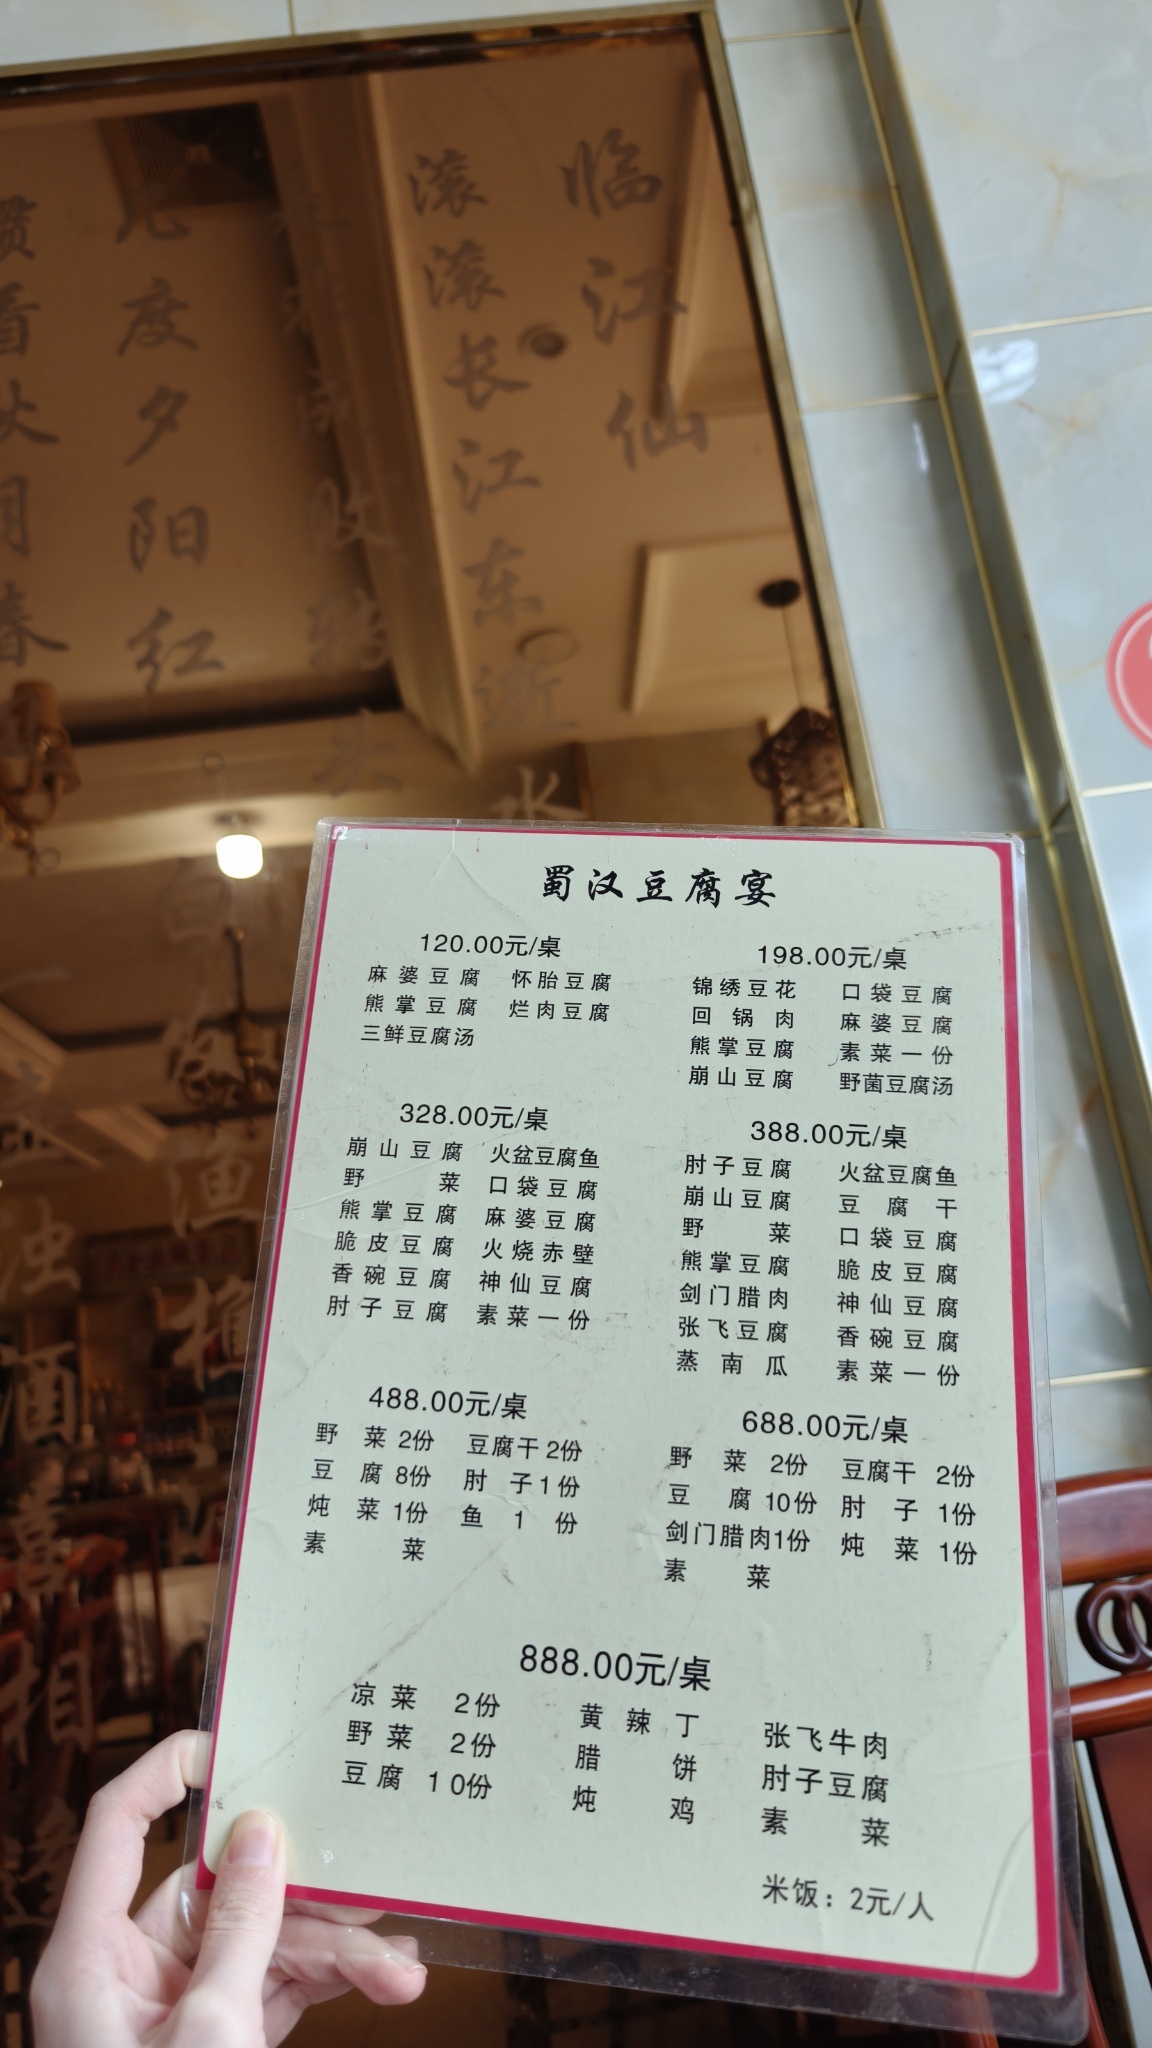 临江仙
滚滚长江东逝水
头
几度夕阳红
白
渔樵
惯看秋月春
浊酒喜相逢
蜀汉豆腐宴
120.00元/桌
麻婆豆腐 怀胎豆腐
熊掌豆腐 烂肉豆腐
三鲜豆腐汤
198.00元/桌
锦绣豆花 口袋豆腐
回锅肉 麻婆豆腐
熊掌豆腐 素菜一份
崩山豆腐 野菌豆腐汤
328.00元/桌
崩山豆腐 火盆豆腐鱼
野菜 口袋豆腐
熊掌豆腐 麻婆豆腐
脆皮豆腐 火烧赤壁
香碗豆腐 神仙豆腐
肘子豆腐 素菜一份
388.00元/桌
肘子豆腐 火盆豆腐鱼
崩山豆腐 豆腐干
野菜 口袋豆腐
熊掌豆腐 脆皮豆腐
剑门腊肉 神仙豆腐
张飞豆腐 香碗豆腐
蒸南瓜 素菜一份
488.00元/桌
野菜2份 豆腐干2份
豆腐8份 肘子1份
炖菜1份 鱼1份
素菜
688.00元/桌
野菜 2份 豆腐干 2份
豆腐10份 肘子 1份
剑门腊肉1份 炖菜 1份
素菜
888.00元/桌
凉菜 2份 黄辣丁 张飞牛肉
野菜 2份 腊饼 肘子豆腐
豆腐 10份 炖鸡 素菜
米饭：2元/人